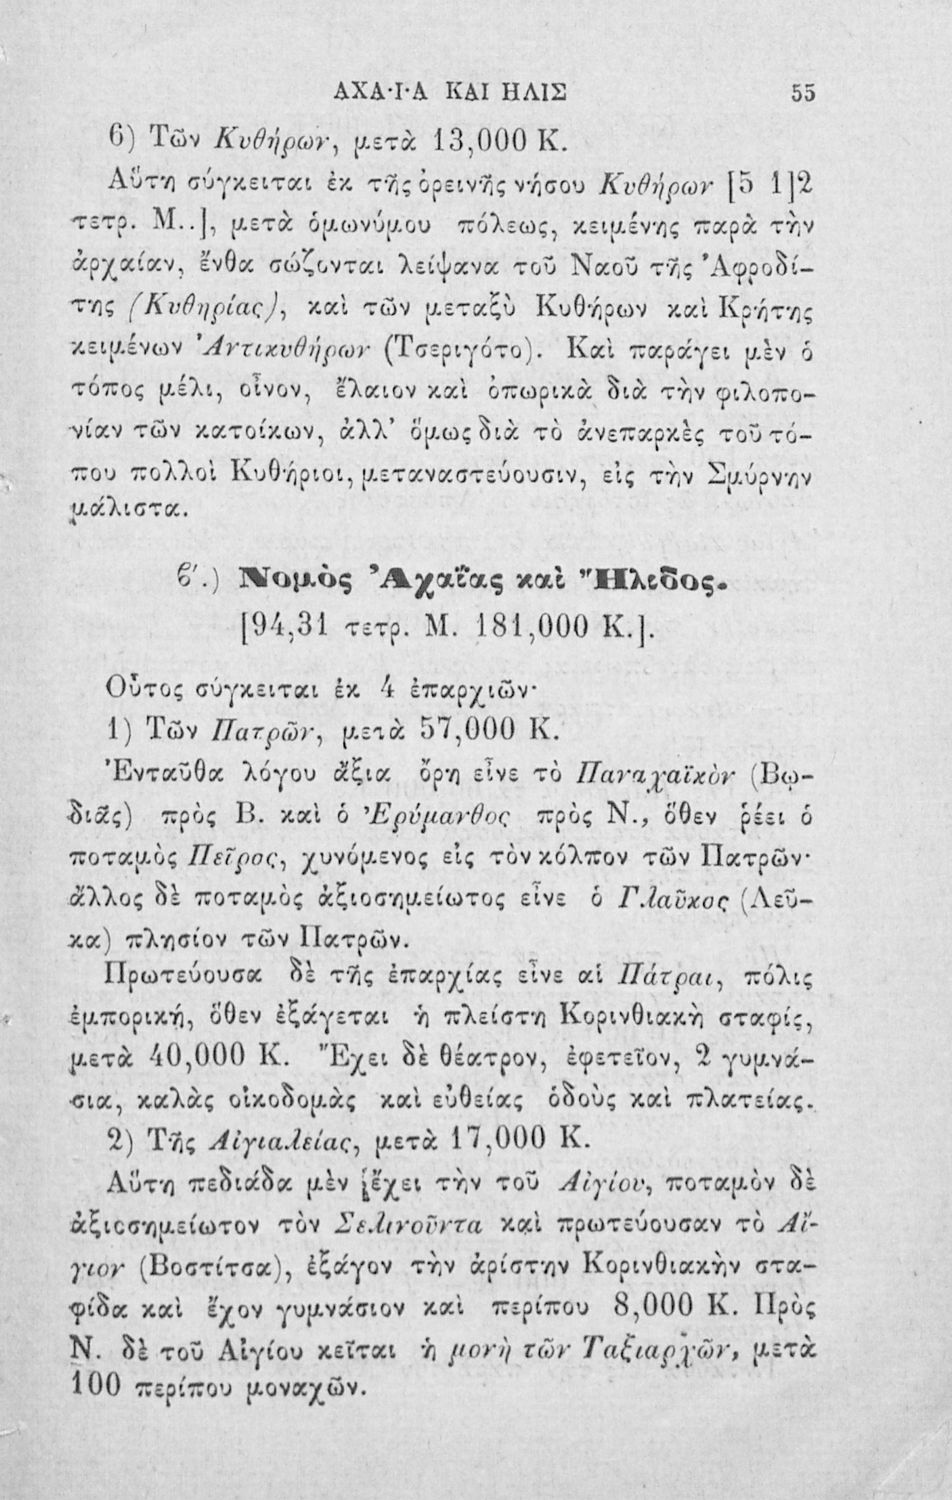 ΑΧΑ·Ι·Α ΚΑΙ ΗΛΙΣ 55
6) Τῶν Κυθήρων, μετὰ 13,000 Κ.
Αὕτη σύγκειται ἐκ τῆς ὀρεινῆς νήσου Κυθήρων [5 1]2
τετρ. Μ..], μετὰ ὁμωνύμου πόλεως, κειμένης παρὰ τὴν
ἀρχαίαν, ἔνθα σώζονται λείψανα τοῦ Ναοῦ τῆς Ἀφροδί-
της (Κυθηρίας), καὶ τῶν μεταξὺ Κυθήρων καὶ Κρήτης
κειμένων Ἀντικυθήρων (Τσεριγότο). Καὶ παράγει μὲν ὁ
τόπος μέλι, οἶνον, ἔλαιον καὶ ὀπωρικὰ διὰ τὴν φιλοπο-
νίαν τῶν κατοίκων, ἀλλ' ὅμως διὰ τὸ ἀνεπαρκὲς τοῦ τό-
που πολλοὶ Κυθήριοι, μεταναστεύουσιν, εἰς τὴν Σμύρνην
μάλιστα.
ϐ'.) Νομὸς Ἀχαΐας καὶ Ἤλιδος.
[94,31 τετρ. Μ. 181,000 Κ.].
Οὗτος σύγκειται ἐκ 4 ἐπαρχιῶν·
1) Τῶν Πατρῶν, μετὰ 57,000 Κ.
Ἐνταῦθα λόγου ἄξια ὄρη εἶνε τὸ Παναχαϊκὸν (Βῳ-
διᾶς) πρὸς Β. καὶ ὁ Ἐρύμανθος πρὸς Ν., ὅθεν ῥέει ὁ
ποταμὸς Πεῖρος, χυνόμενος εἰς τὸν κόλπον τῶν Πατρῶν·
ἄλλος δὲ ποταμὸς ἀξιοσημείωτος εἶνε ὁ Γλαῦκος (Λεῦ-
κα) πλησίον τῶν Πατρῶν.
Πρωτεύουσα δὲ τῆς ἐπαρχίας εἶνε αἱ Πάτραι, πόλις
ἐμπορική, ὅθεν ἐξάγεται ἡ πλείστη Κορινθιακὴ σταφίς,
μετὰ 40,000 Κ. Ἔχει δὲ θέατρον, ἐφετεῖον, 2 γυμνά-
σια, καλὰς οἰκοδομὰς καὶ εὐθείας ὁδοὺς καὶ πλατείας.
2) Τῆς Αἰγιαλείας, μετὰ 17,000 Κ.
Αὕτη πεδιάδα μὲν ἔχει τὴν τοῦ Αἰγίου, ποταμὸν δὲ
ἀξιοσημείωτον τὸν Σελινοῦντα καὶ πρωτεύουσαν τὸ Αἴ-
γιον (Βοστίτσα), ἐξάγον τὴν ἀρίστην Κορινθιακὴν στα-
φίδα καὶ ἔχον γυμνάσιον καὶ περίπου 8,000 Κ. Πρὸς
Ν. δὲ τοῦ Αἰγίου κεῖται ἡ μονὴ τῶν Ταξιαρχῶν, μετὰ
100 περίπου μοναχῶν.